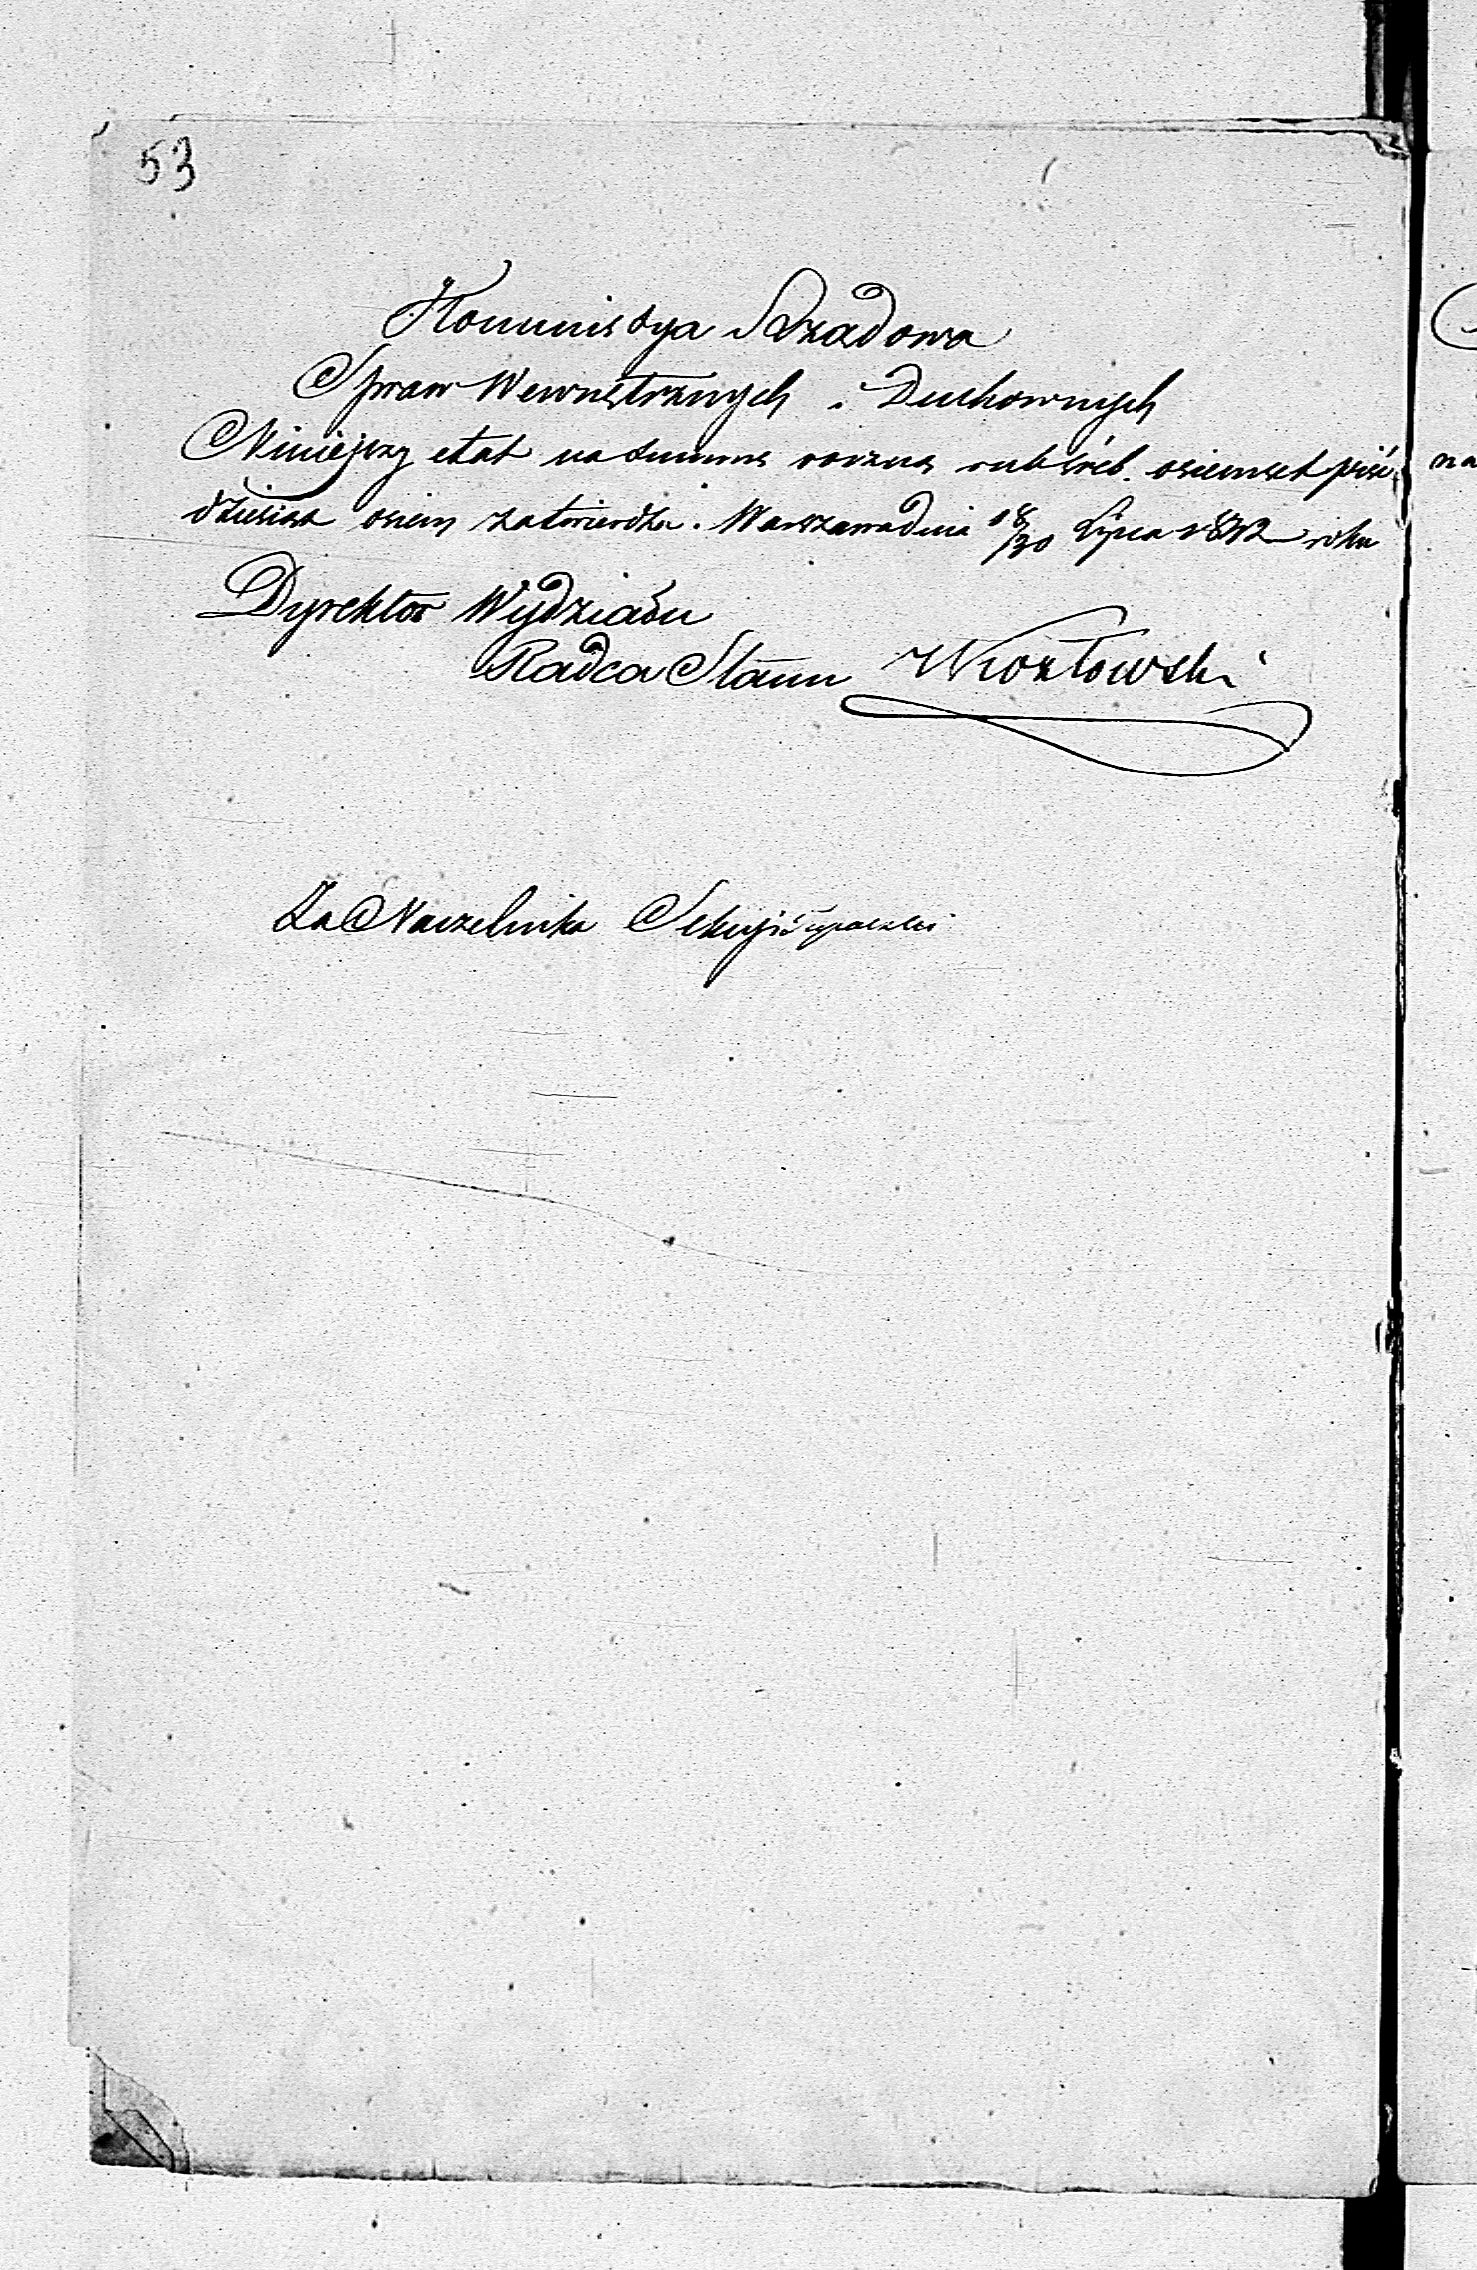 53
Kommissya Rządowa
Spraw Wewnętrznych i Duchownych
Niniejszy etat na summę roczną rub. śreb. ośiemset pięć
dziesiąt ośiem zatwierdza. Warszawa dnia 18/30 Lipca 1842 roku
Dyrektor Wydziału
Radca Stanu Kozłowski
Za Naczelnika Sekcyi
na